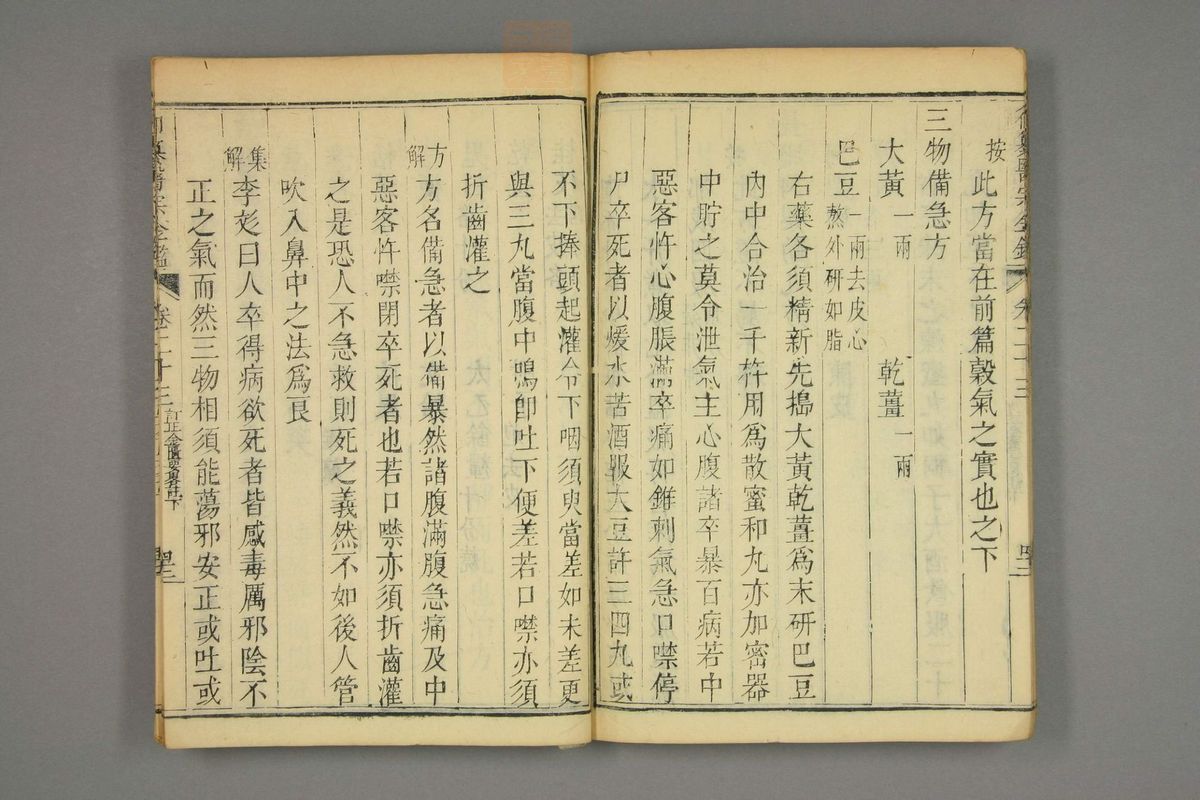 按此方當在前篇穀氣之實也之下
三物備急方
大黃一兩　乾薑一兩
巴豆一兩去皮心
熬外研如脂
右藥各須精新先搗大黃乾薑爲末研巴豆
內中合治一千杵用爲散蜜和丸亦加密器
中貯之莫令泄氣主心腹諸卒暴百病若中
惡客忤心腹脹滿卒痛如錐刺氣急口噤停
尸卒死者以煖水苦酒服大豆許三四丸或
不下捧頭起灌令下咽須臾當差如未差更
與三丸當腹中鳴卽吐下便差若口噤亦須
折齒灌之
方解方名備急者以備暴然諸腹滿腹急痛及中
惡客忤噤閉卒死者也若口噤亦須折齒灌
之是恐人不急救則死之義然不如後人管
吹入鼻中之法爲良
集解李彣曰人卒得病欲死者皆感毒厲邪陰不
正之氣而然三物相須能蕩邪安正或吐或
御纂醫宗金鑑　卷二十三